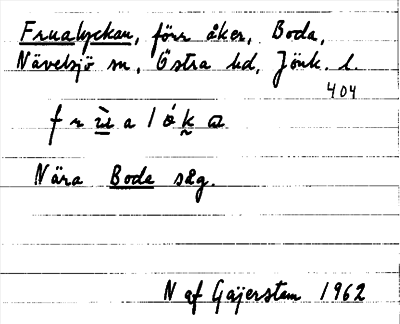 Frualyckan, förr åker, Boda,
Nävelsjö sn, Östra hd, Jönk. l.
404
Nära Boda säg.
N af Gajerstam 1962